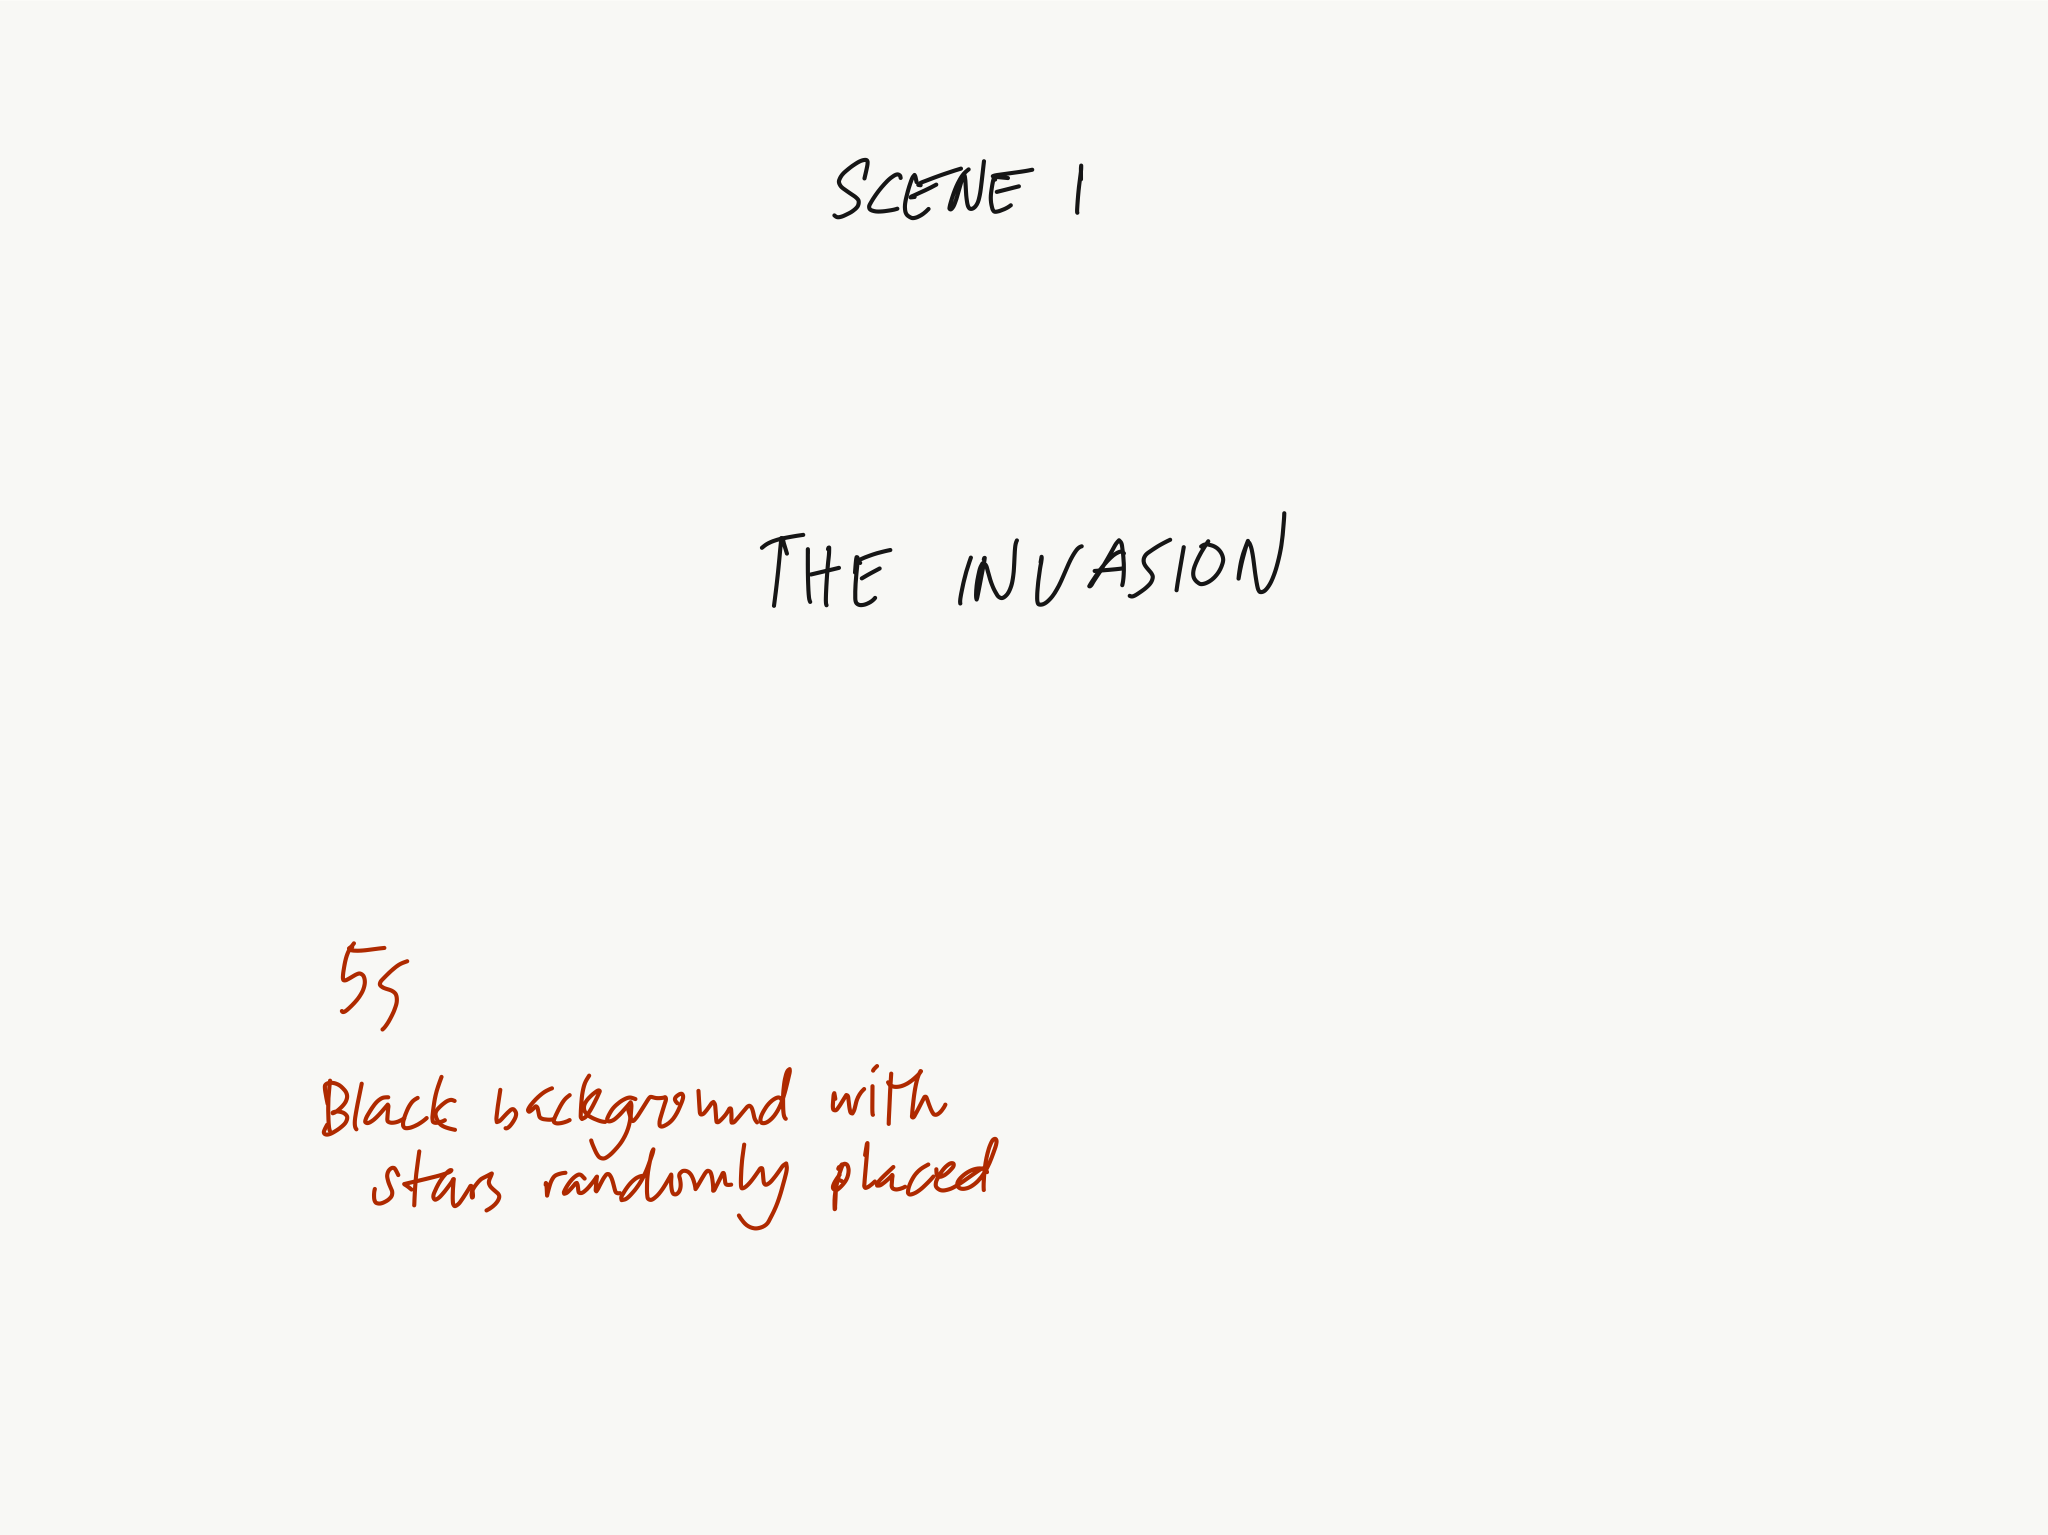 SCENE 1
THE INVASION
5s
Black background with
stars randomly placed